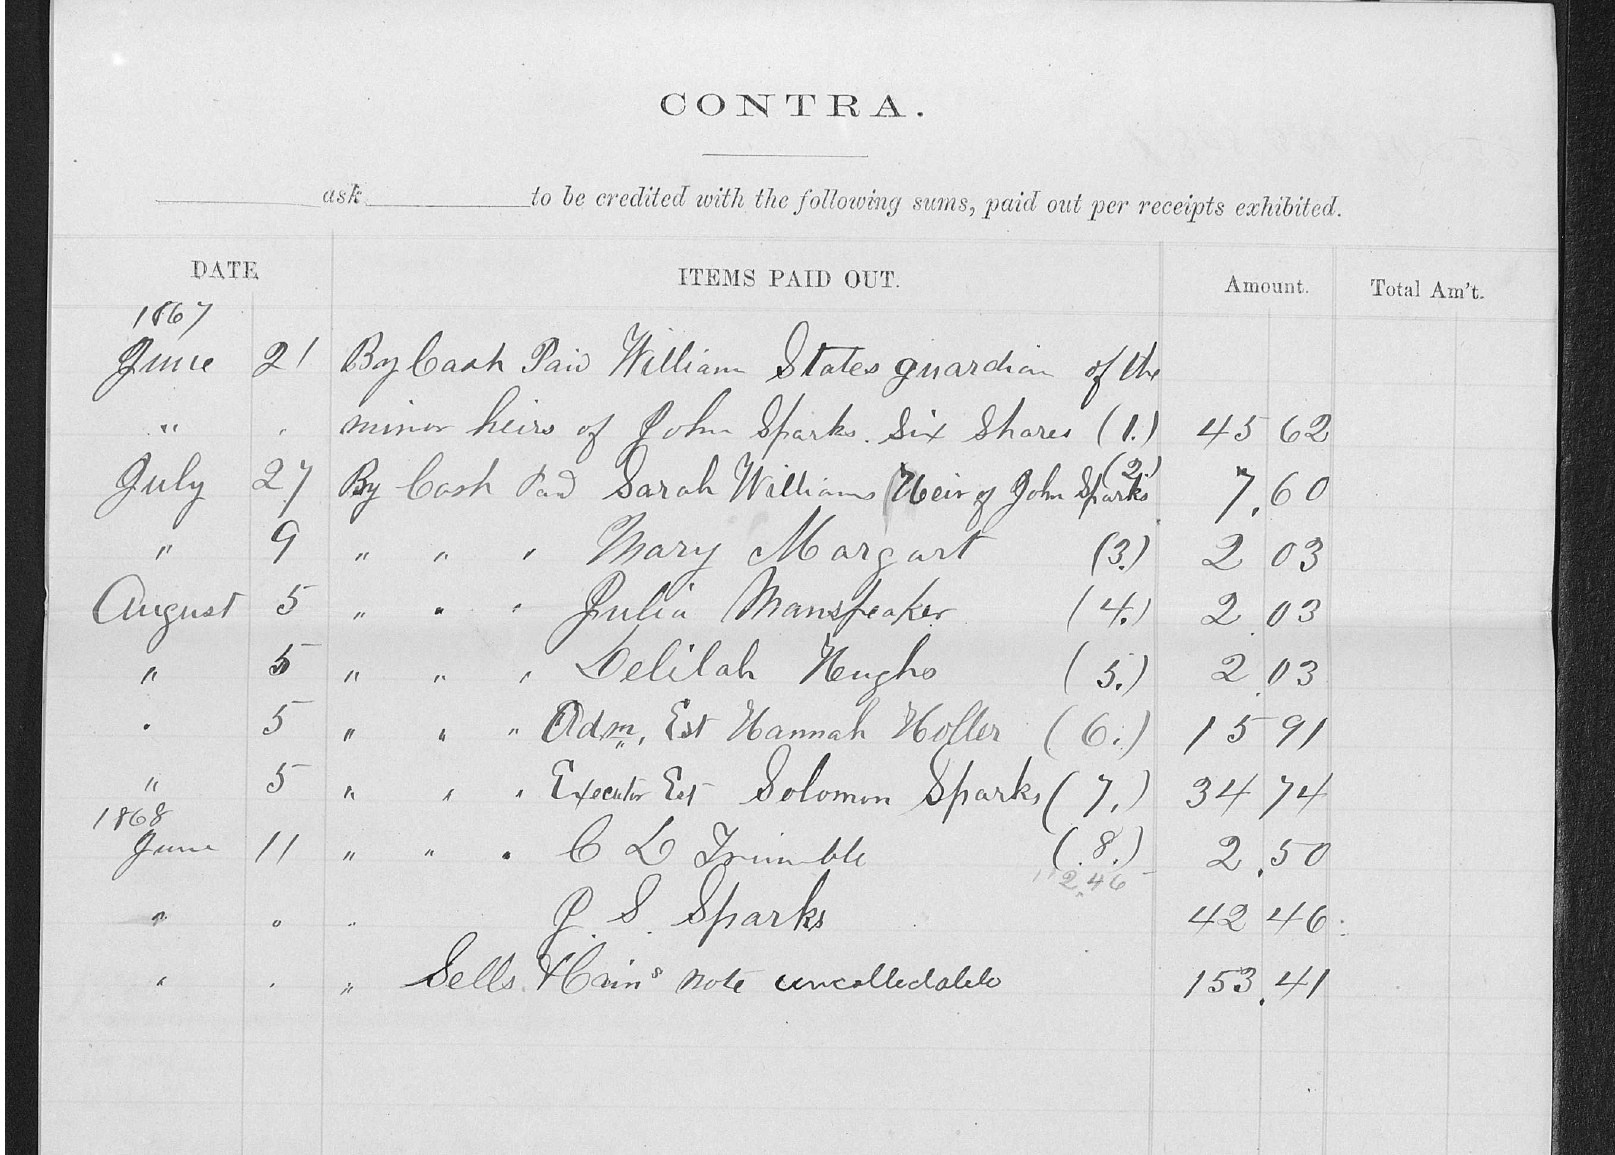 CONTRA.
ask to be credited with the following sums, paid out per receipts exhibited.
DATE ITEMS PAID OUT. Amount. Total Am't.
1867
June 21 By Cash Paid William States guardian of the
" " minor heirs of John Sparks. Six Shares (1.) 45 62
July 27 By Cash Paid Sarah Williams Heir of John Sparks (2.) 7.60
" 9 " " " Mary Margart (3.) 2 03
August 5 " " " Julia Manspeaker (4.) 2.03
" 5 " " " Delilah Hughs (5.) 2.03
" 5 " " " Adm. Est Hannah Holler (6.) 15 91
" 5 " " " Executor Est Solomon Sparks (7.) 34 74
1868
June 11 " " " C L Trimble (8.) 2.50
2.46
" " " J. S. Sparks 42 46
" " " Sells note uncolledable 153.41